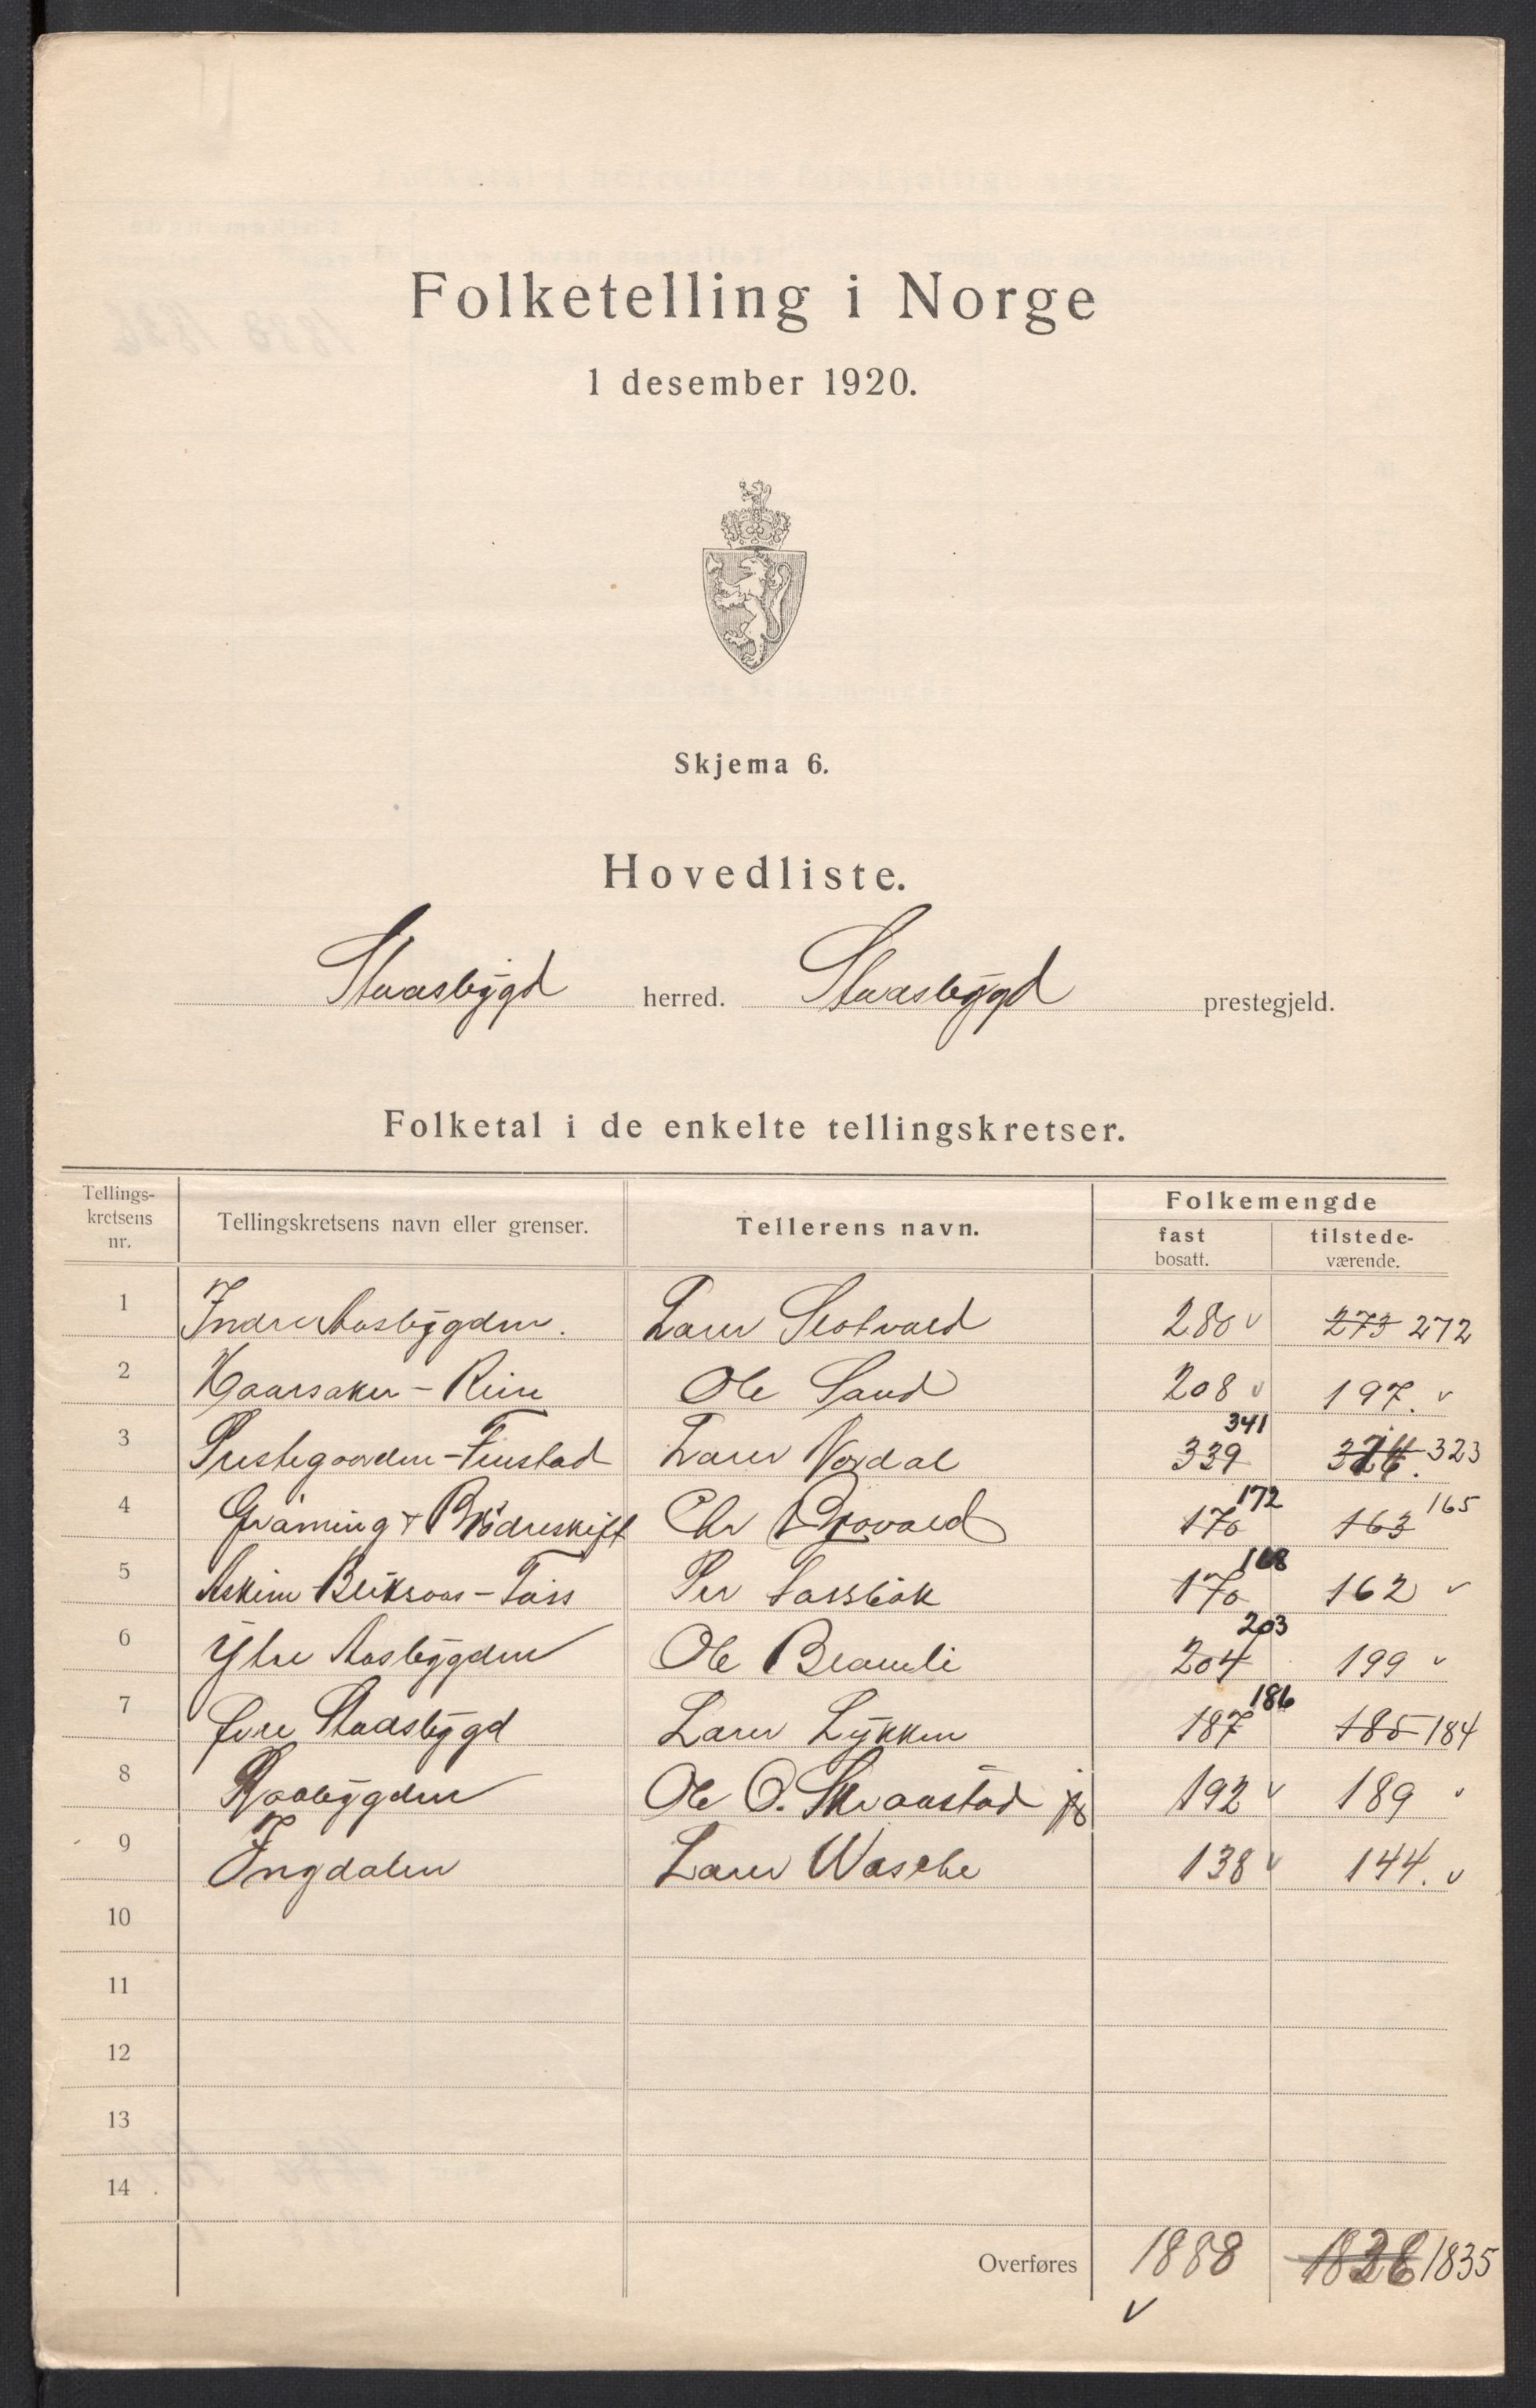 Folketelling i Norge
1 desember 1920.
Skjema 6.
Hovedliste.
Stadsbygd herred. Stadsbygd prestegjeld.
Folketal i de enkelte tellingskretser.
Tellings-kretsens nr. Tellingskretsens navn eller grenser. Tellerens navn. Folkemengde
fast bosatt. tilstede-værende.
1 Indre Aasbygden. Larer Slotvold 280 v 273 272
2 Haarsaker - Rein Ole Sand 208 v 197. v
3 Prestegaarden - Finstad Larer Nordal 339 341 323
4 Græming + Brödreskift Chr 170 172 163 165
5 Askim - Fass Per 170 168 162 v
6 Ytre Aasbygden Ole Bramli 204 203 199 v
7 Övre Stadsbygd Larer Lykken 187 186 185 184
8 Raabygden Ole O. Skraastad 192 v 189 v
9 Ingdalen Larer Wasche 138 v 144. v
10
11
12
13
14
Overføres 1888 1835
v